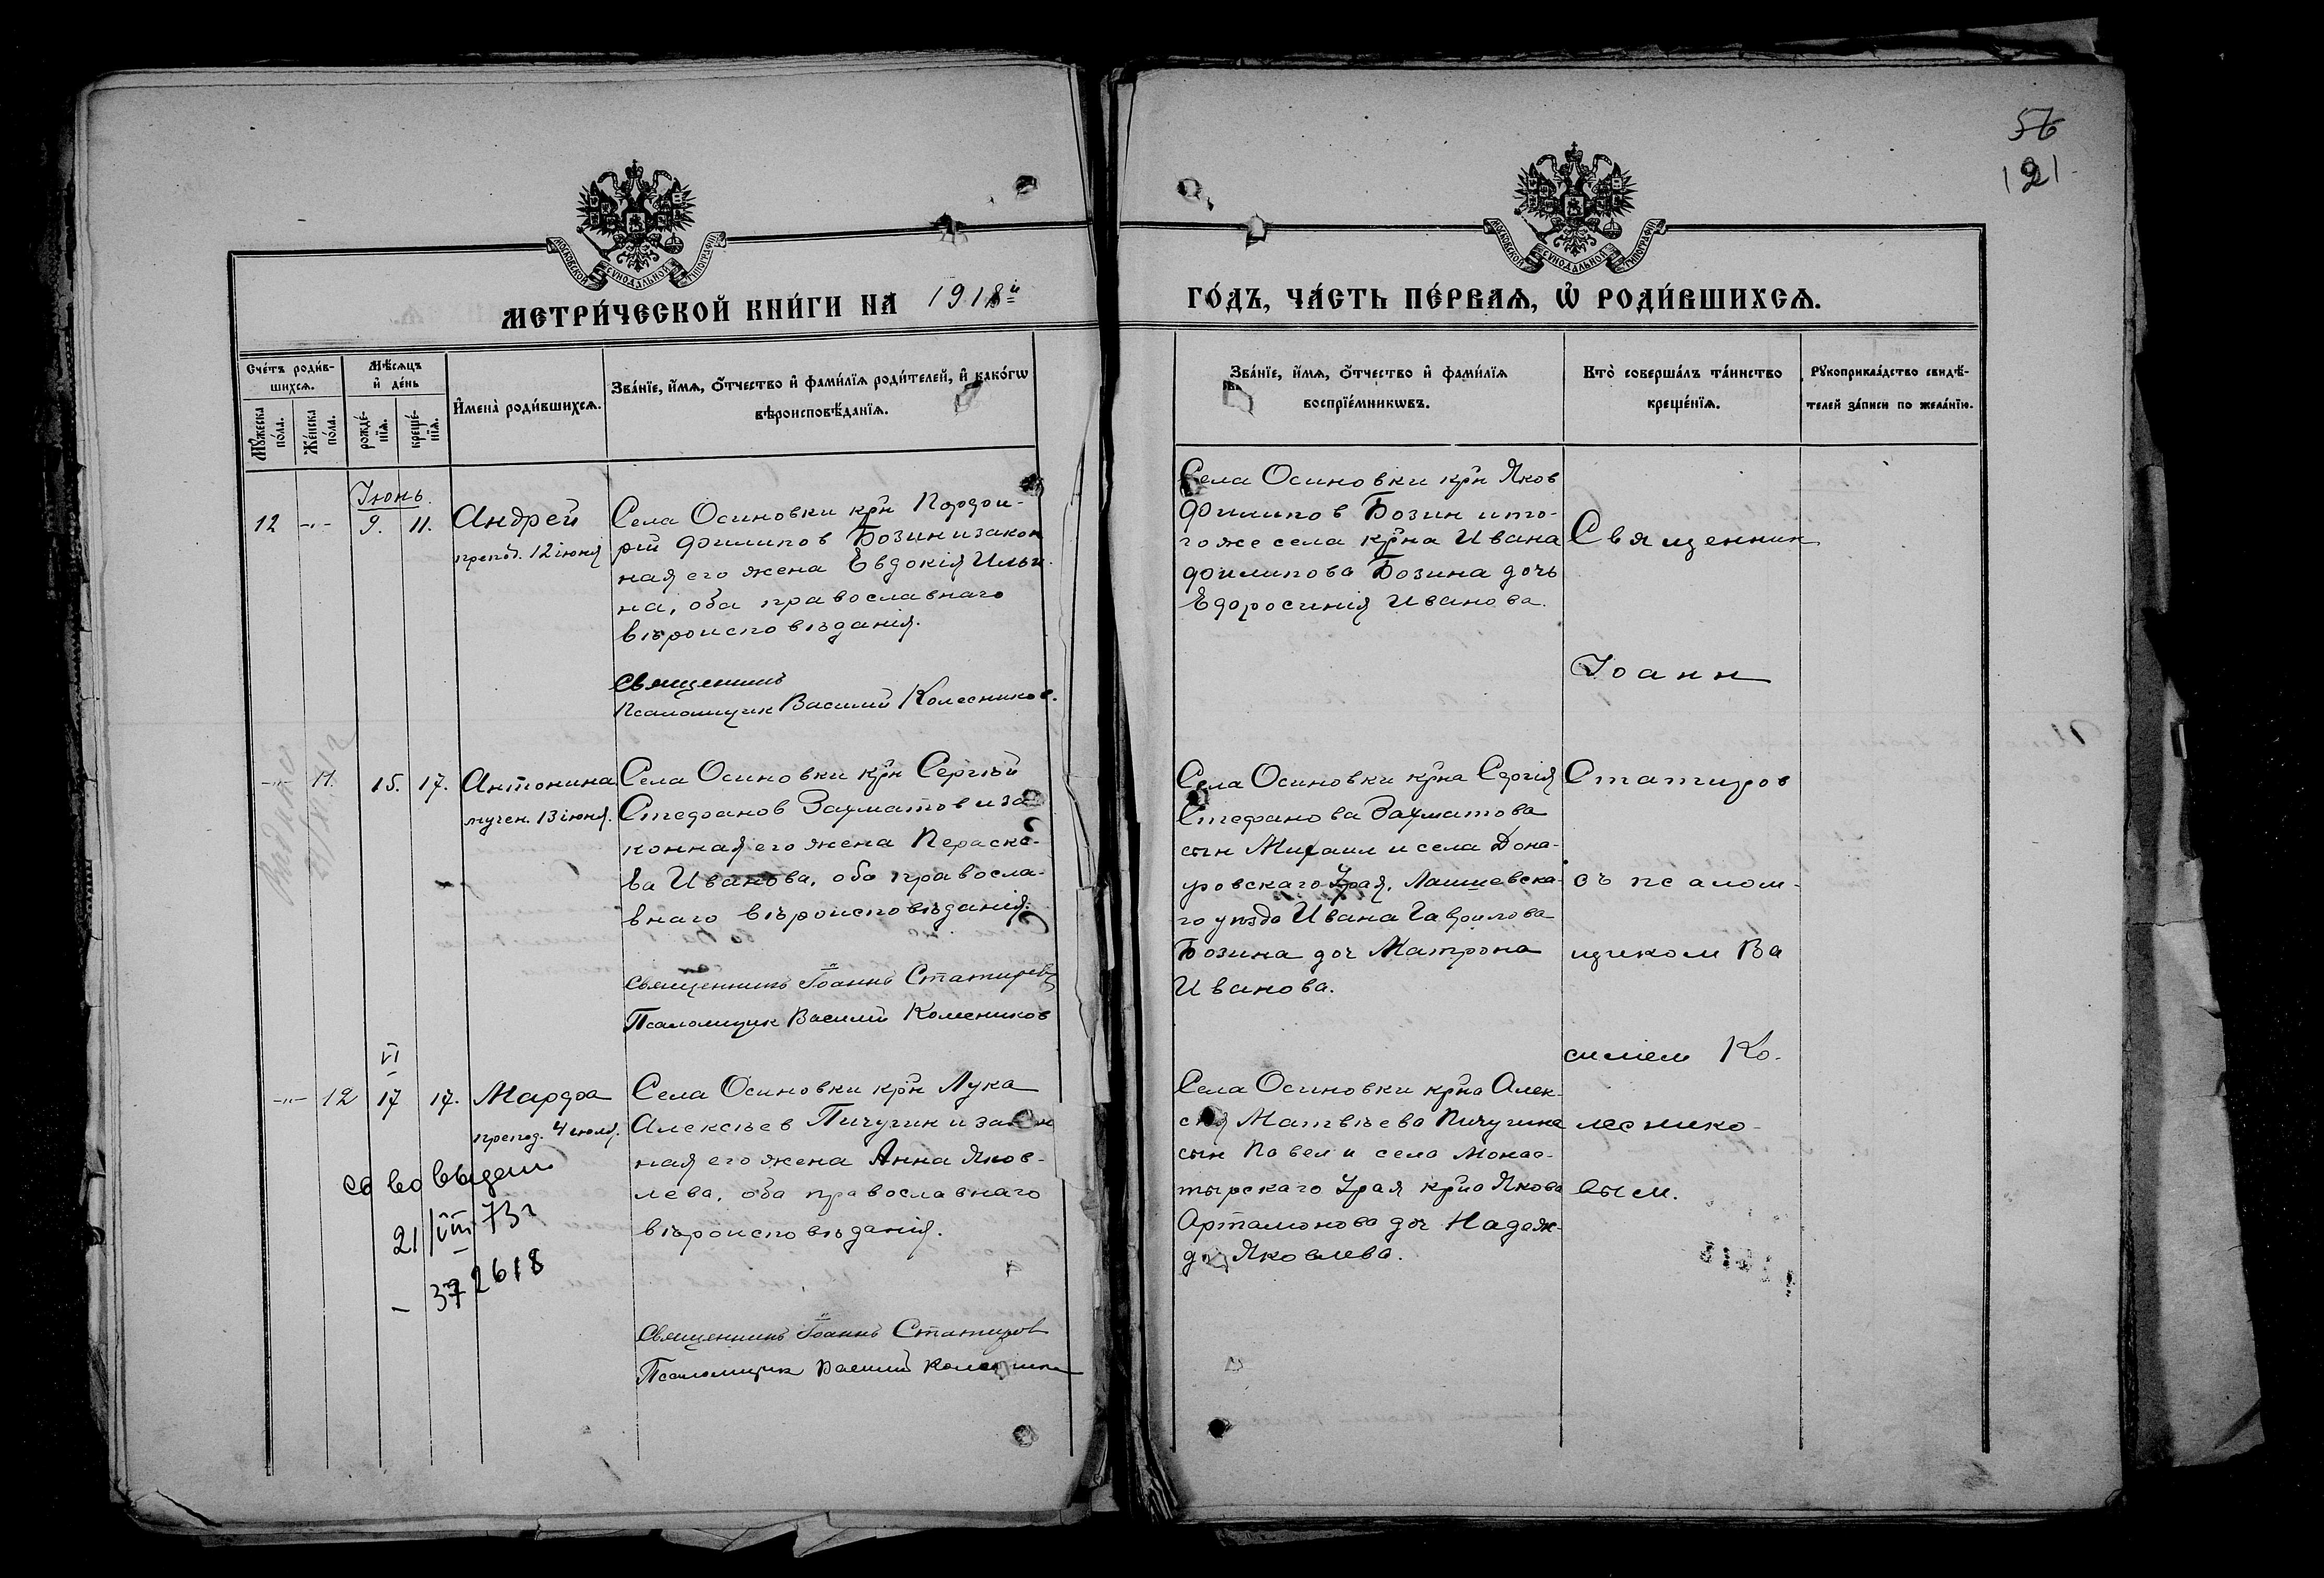 56
121
МОСКОВСКОЙ СѴНОДАЛЬНОЙ ТИПОГРАФІИ
МОСКОВСКОЙ СѴНОДАЛЬНОЙ ТИПОГРАФІИ
МЕТРИ́ЧЕСКОЙ КНИ́ГИ НА 1918й
ГО́ДЪ, ЧА́СТЬ ПЕ́РВАѦ, Ѿ РОДИ́ВШИХСѦ.
Сче́тъ роди́в-
шихсѧ.
Мꙋжеска
по́ла.
Же́нска
по́ла.
Мѣ́сѧцъ
и҆ де́нь
рожде́-
нїѧ.
креще́-
нїѧ.
И҆мена̀ роди́вшихсѧ.
Зва́нїе, и҆́мѧ, ѻ҆́тчество и҆ фами́лїѧ роди́телей, и҆ како́гѡ
вѣроисповѣ́данїѧ.
Зва́нїе, и҆́мѧ, ѻ҆́тчество и҆ фами́лїѧ
воспрїе́мникѡвъ.
Кто̀ соверша́лъ та́инство
креще́нїѧ.
Рꙋкоприкла́дство свидѣ́-
телей за́писи по жела́нїю.
Іюнь.
12 -"- 9. 11. Андрей
препод. 12 іюня
Села Осиновки крн Порфи-
рій Филипов Бозин и закон
ная его жена Евдокія Ильи-
на, оба православнаго
вѣроисповѣданія.
Священникъ
Псаломщик Василий Колесников.
Села Осиновки крн Яков
Филипов Бозин и то-
гоже села крна Ивана
Филипова Бозина дочь
Ефросинія Иванова.
-"- 11. 15. 17. Антонина
мучен. 13 іюня.
Села Осиновки крн Сергѣй
Стефанов Захматов и за
конная его жена Пераске-
ва Иванова, оба правосла-
внаго вѣроисповѣданія.
Священникъ Іоаннъ Статировъ
Псаломщик Василий Колесников
Села Осиновки крна Сергія
Стефанова Захматова
сын Михаил и села Дона-
уровскаго Урая, Лаишевска-
го уѣзда Ивана Гаврилова
Бозина доч Матрона
Иванова.
VI
-"- 12 17 17. Марфа
препод. 4 іюля.
Села Осиновки крн Лука
Алексѣев Пичугин и закон
ная его жена Анна Яков-
лева, оба православнаго
вѣроисповѣданія.
Священникъ Іоаннъ Статиров
Псаломщик Василий Колесник
Села Осиновки крна Алек-
сѣя Матвѣева Пичугина
сын Павел и села Монас-
тырскаго Урая крна Якова
Артамонова доч Надеж-
да Яковлева.
Священник
Іоанн
Статиров
съ псалом-
щиком Ва
силіем Ко-
леснико-
вым.
св во выдан
21/VIII 73г
- 372618